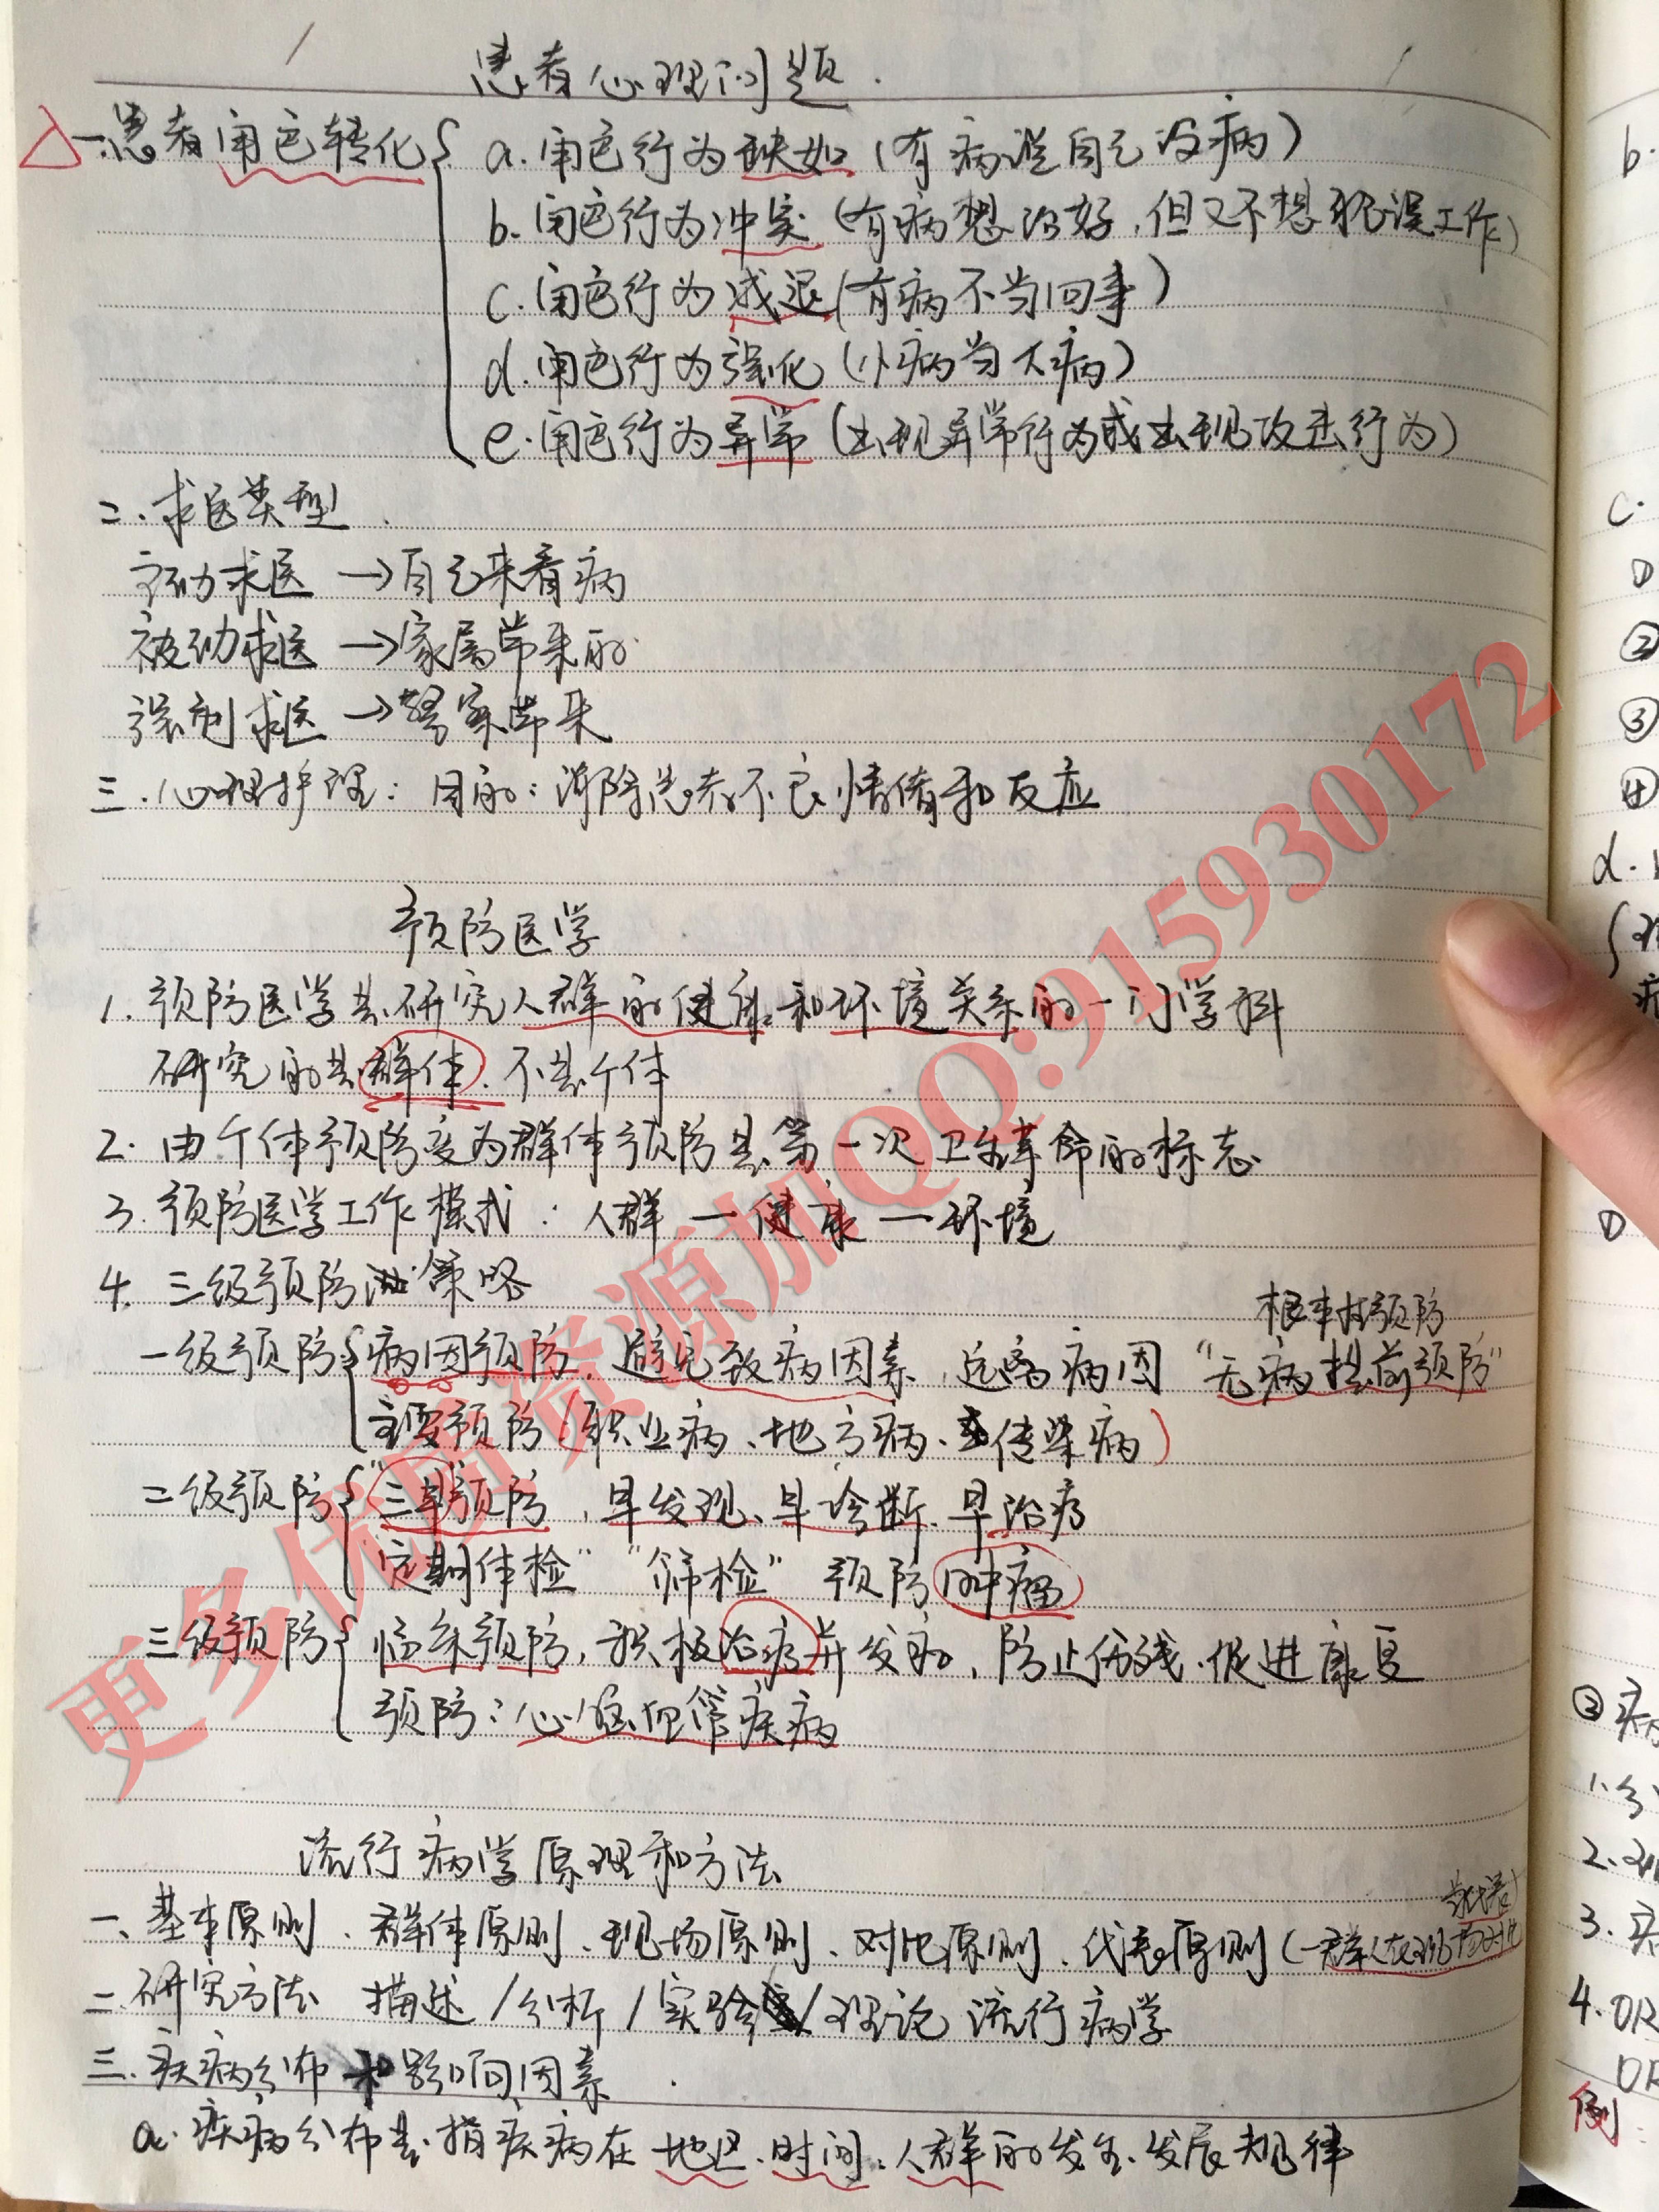 患者心理问题.
一.患者角色转化
a.角色行为缺如(有病说自己没病)
b.角色行为冲突(有病想治好,但又不想耽误工作)
c.角色行为减退(有病不当回事)
d.角色行为强化(小病当大病)
e.角色行为异常(出现异常行为或出现攻击行为)
二.求医类型
主动求医→自己来看病
被动求医→家属带来的
强制求医→警察带来
三.心理护理:目的:消除患者不良情绪和反应
预防医学
1.预防医学是研究人群的健康和环境关系的一门学科
研究的是群体.不是个体
2.由个体预防变为群体预防是第一次卫生革命的标志
3.预防医学工作模式:人群—健康—环境
4.三级预防策略
根本性预防
一级预防 病因预防,避免致病因素,远离病因"无病提前预防"
主要预防(职业病、地方病、传染病)
二级预防 "三早"预防,早发现、早诊断、早治疗
"定期体检""筛检"预防肿瘤
三级预防 临床预防,积极治疗并发症,防止伤残.促进康复
预防:心脑血管疾病
流行病学原理和方法
一、基本原则、群体原则、现场原则、对比原则、代表原则(一群人在现场对比
二.研究方法 描述/分析/实验/理论 流行病学
三.疾病分布和影响因素.
a.疾病分布是指疾病在地区、时间、人群的发生、发展规律
更多优质资源加QQ:915930172
b.
c.
①
②
③
④
d.
①
②
1.分
2.
3.
4.OR
OR
例: